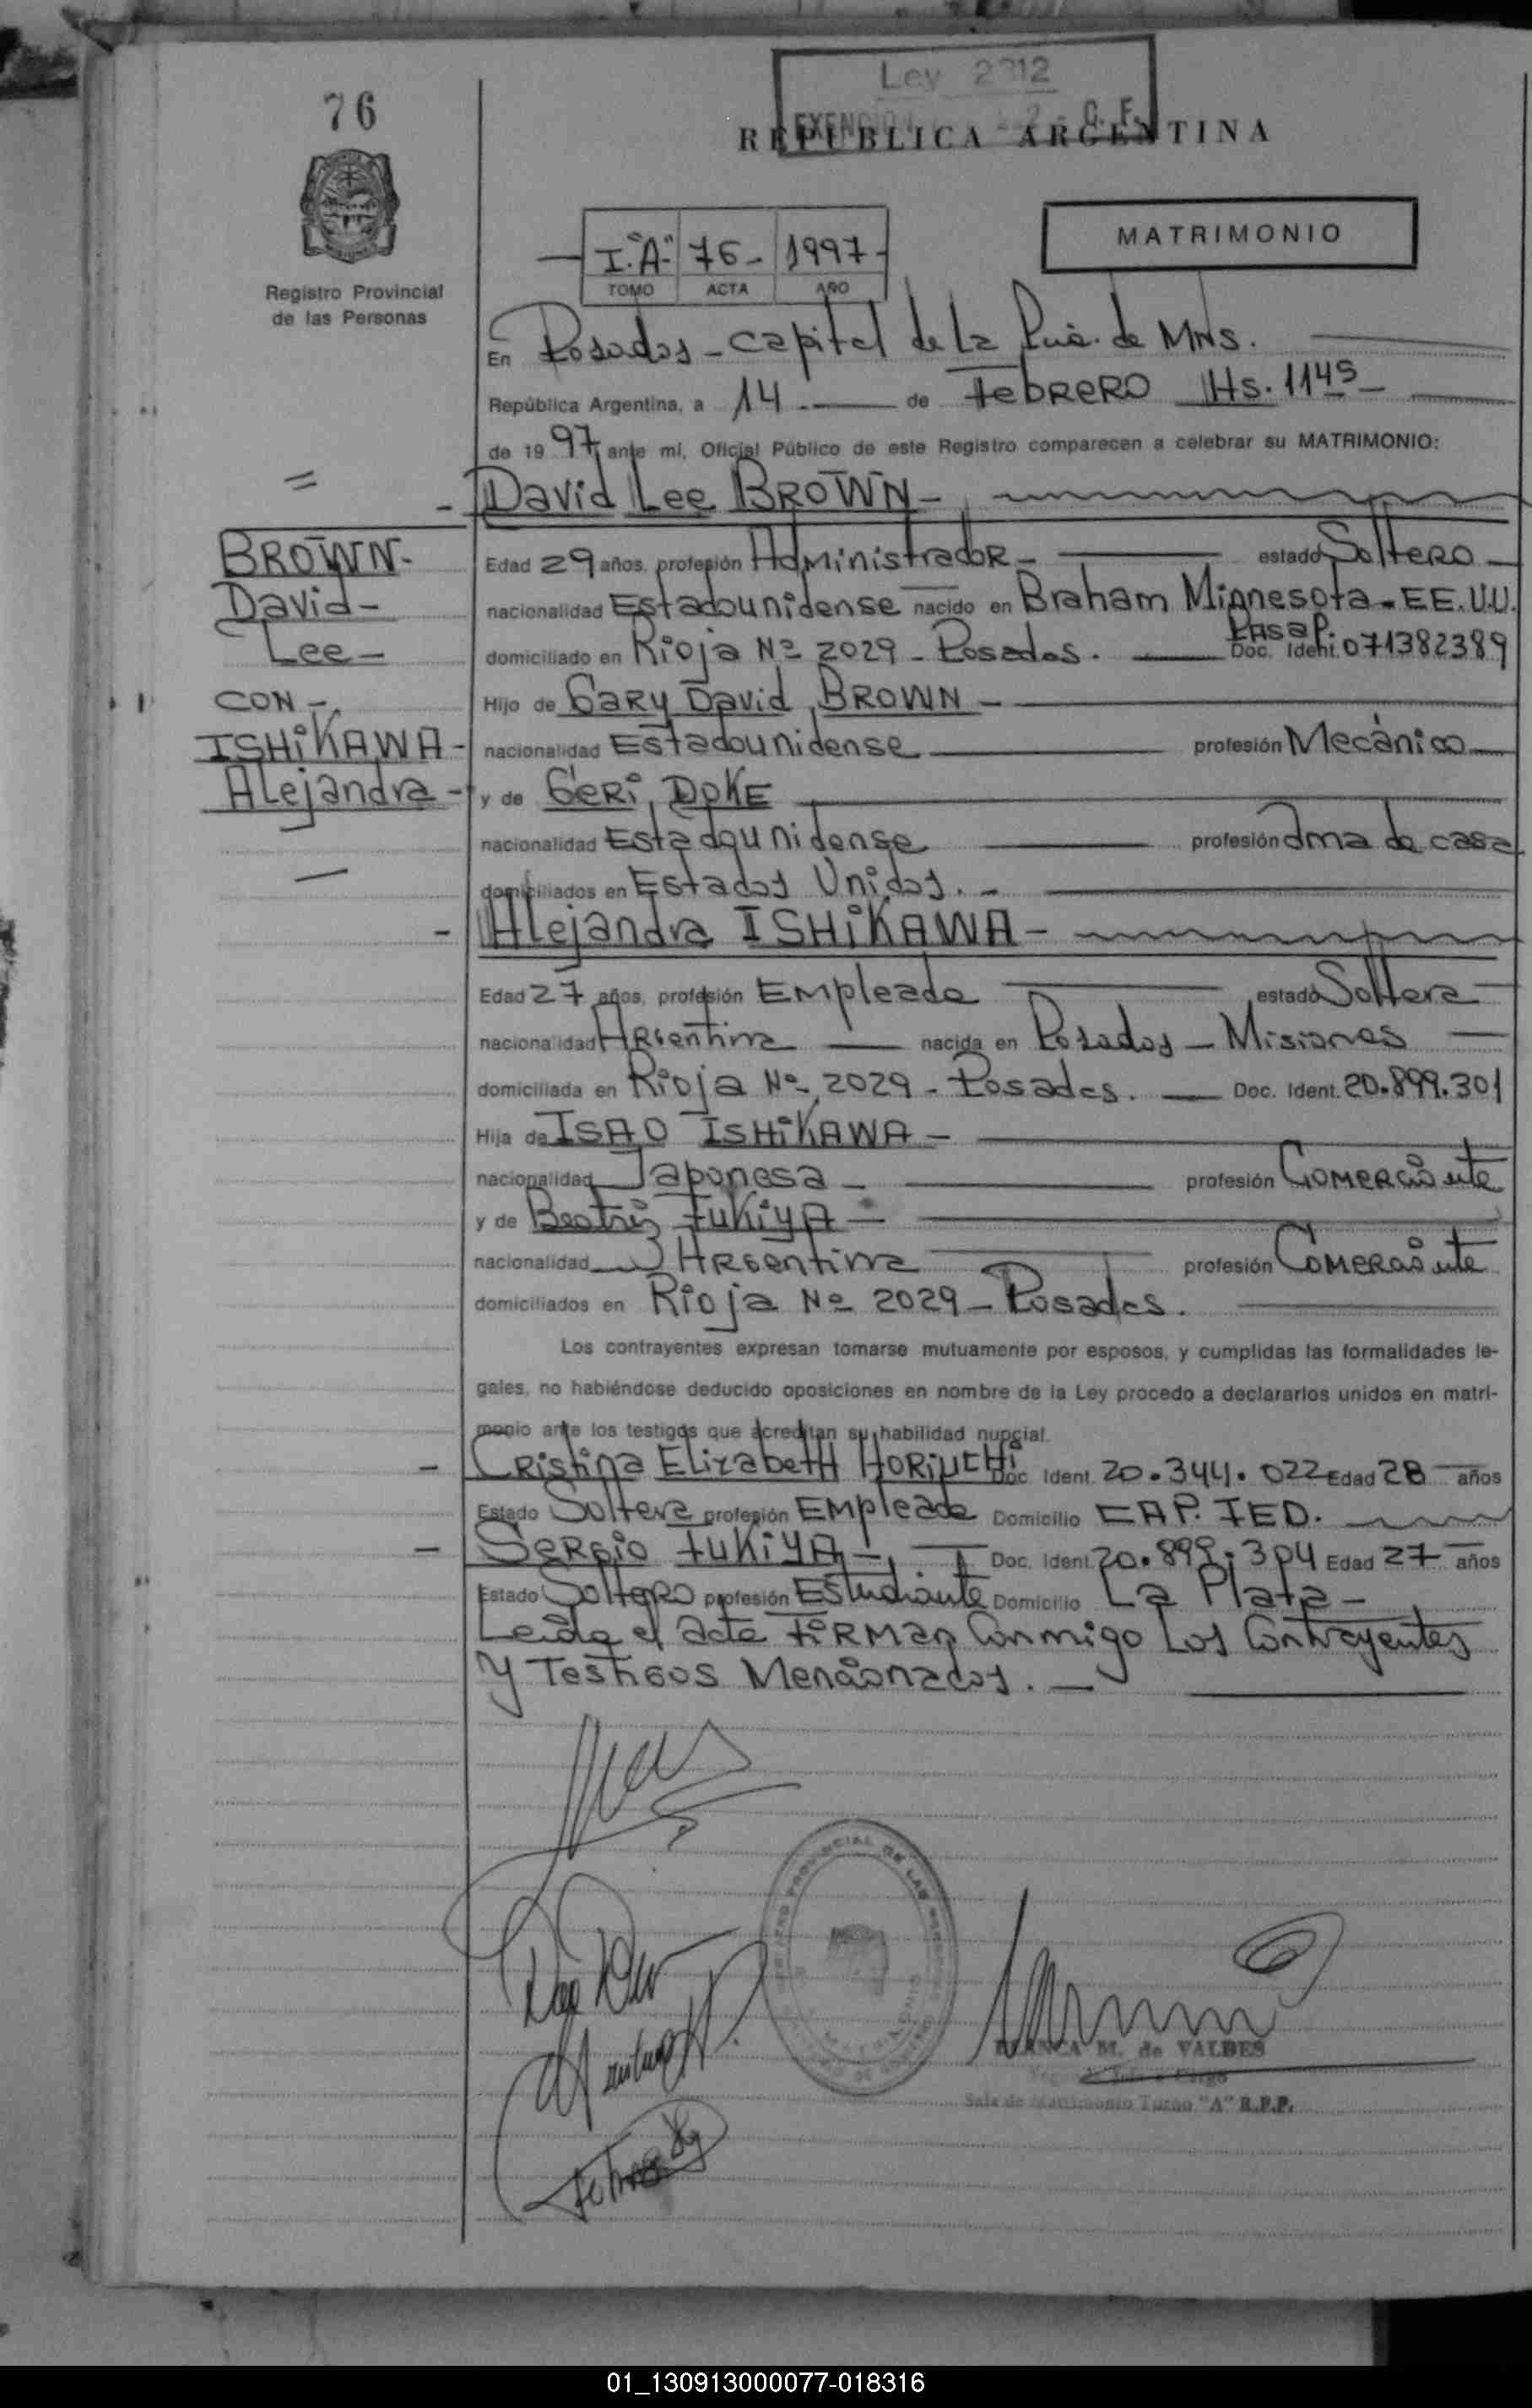 76
Ley 2312
EXENCION
C. F.
REPUBLICA ARGENTINA
MATRIMONIO
I."A"- 76- 1997-
TOMO ACTA AÑO
Registro Provincial
de las Personas
En Posadas - Capital de La Pcia. de Mns.
República Argentina, a 14 - de Febrero Hs. 11 45
de 1997 ante mí, Oficial Público de este Registro comparecen a celebrar su MATRIMONIO:
- David Lee BROWN -
BROWN-
David-
Lee-
CON-
ISHIKAWA-
Alejandra-
Edad 29 años, profesión Administrador - estado Soltero -
nacionalidad Estadounidense nacido en Braham Minnesota - EE.UU.
domiciliado en Rioja Nº 2029 - Posadas. Pasap. Doc. Ident. 071382389
Hijo de Gary David BROWN -
nacionalidad Estadounidense profesión Mecánico
y de Geri DOKE
nacionalidad Estadounidense profesión Ama de casa
domiciliados en Estados Unidos. -
- Alejandra ISHIKAWA -
Edad 27 años, profesión Empleada estado Soltera
nacionalidad Argentina nacida en Posadas - Misiones
domiciliada en Rioja Nº 2029 - Posadas. Doc. Ident. 20.899.301
Hija de ISAO ISHIKAWA -
nacionalidad Japonesa - profesión Comerciante
y de Beatriz FUKIYA -
nacionalidad Argentina profesión Comerciante
domiciliados en Rioja Nº 2029 - Posadas.
Los contrayentes expresan tomarse mutuamente por esposos, y cumplidas las formalidades le-
gales, no habiéndose deducido oposiciones en nombre de la Ley procedo a declararlos unidos en matri-
monio ante los testigos que acreditan su habilidad nupcial.
- Cristina Elizabeth HORIUCHI Doc. Ident. 20.344.022 Edad 28 años
Estado Soltera profesión Empleada Domicilio CAP. FED.
- Sergio FUKIYA - Doc. Ident. 20.899.304 Edad 27 años
Estado Soltero profesión Estudiante Domicilio La Plata -
Leida el acta firman conmigo Los Contrayentes
y Testigos Mencionados. -
BLANCA M. de VALDES
Sala de Matrimonio Turno "A" R.P.P.
01_130913000077-018316